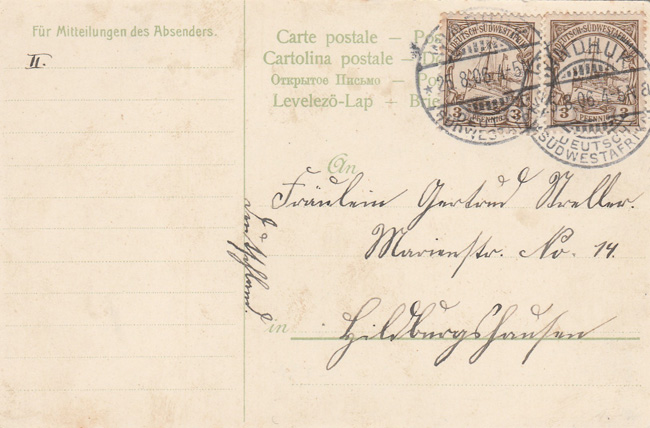 Für Mitteilungen des Absenders.
II.
Carte postale — Po
Cartolina postale —
Открытое Письмо — Po
Levelező-Lap + Brie
DEUTSCH-SÜDWESTAFRIKA
3 PFENNIG 3
DEUTSCH-SÜDWESTAFRIKA
3 PFENNIG
WINDHUK
25.8.06. 4-5N
DEUTSCH-
SÜDWESTAFRIKA
An
Fräulein Gertrud Streller.
Marienstr. No. 14.
in
Hildburghausen